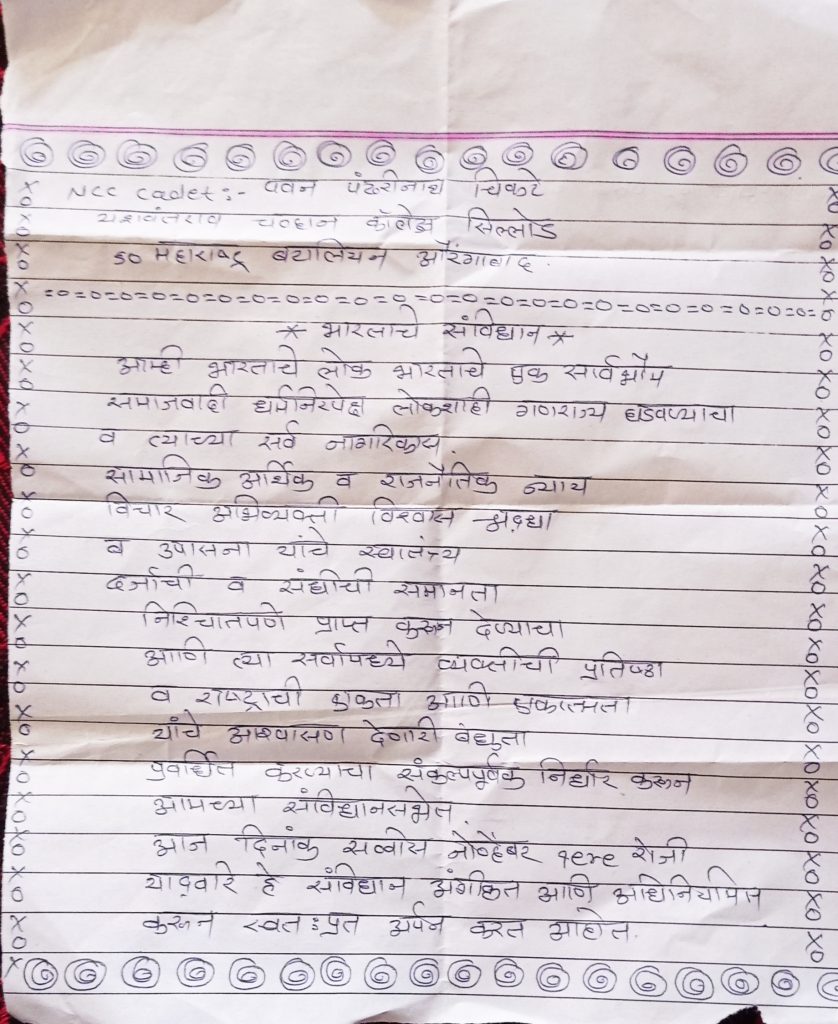 NCC cadet:- पवन पंढरीनाथ चिकटे
यशवंतराव चव्हान कॉलेज सिल्लोड
50 महाराष्ट्र बटालियन औरंगाबाद.
* भारताचे संविधान *
आम्ही भारताचे लोक भारताचे एक सार्वभौम
समाजवादी धर्मनिरपेक्ष लोकशाही गणराज्य घडवण्याचा
व त्याच्या सर्व नागरिकास.
सामाजिक आर्थिक व राजनैतिक न्याय
विचार अभिव्यक्ती विश्वास श्रद्धा
व उपासना यांचे स्वातंत्र्य
दर्जाची व संधीची समानता
निश्चितपणे प्राप्त करून देण्याचा
आणि त्या सर्वांमध्ये व्यक्तीची प्रतिष्ठा
व राष्ट्राची एकता आणि एकात्मता
यांचे आश्वासण देणारी बंधुता
प्रवर्धित करण्याचा संकल्पपूर्वक निर्धार करून
आमच्या संविधानसभेत.
आज दिनांक सव्वीस नोव्हेंबर १९४९ रोजी
याद्वारे हे संविधान अंगीकृत आणि अधिनियमित
करून स्वतःप्रत अर्पन करत आहोत.